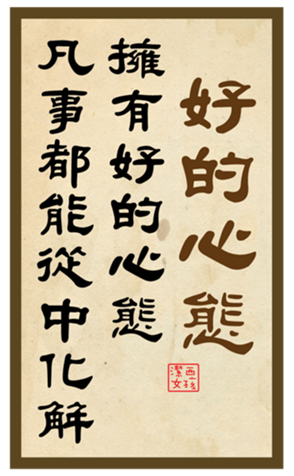 好的心態
擁有好的心態
凡事都能從中化解